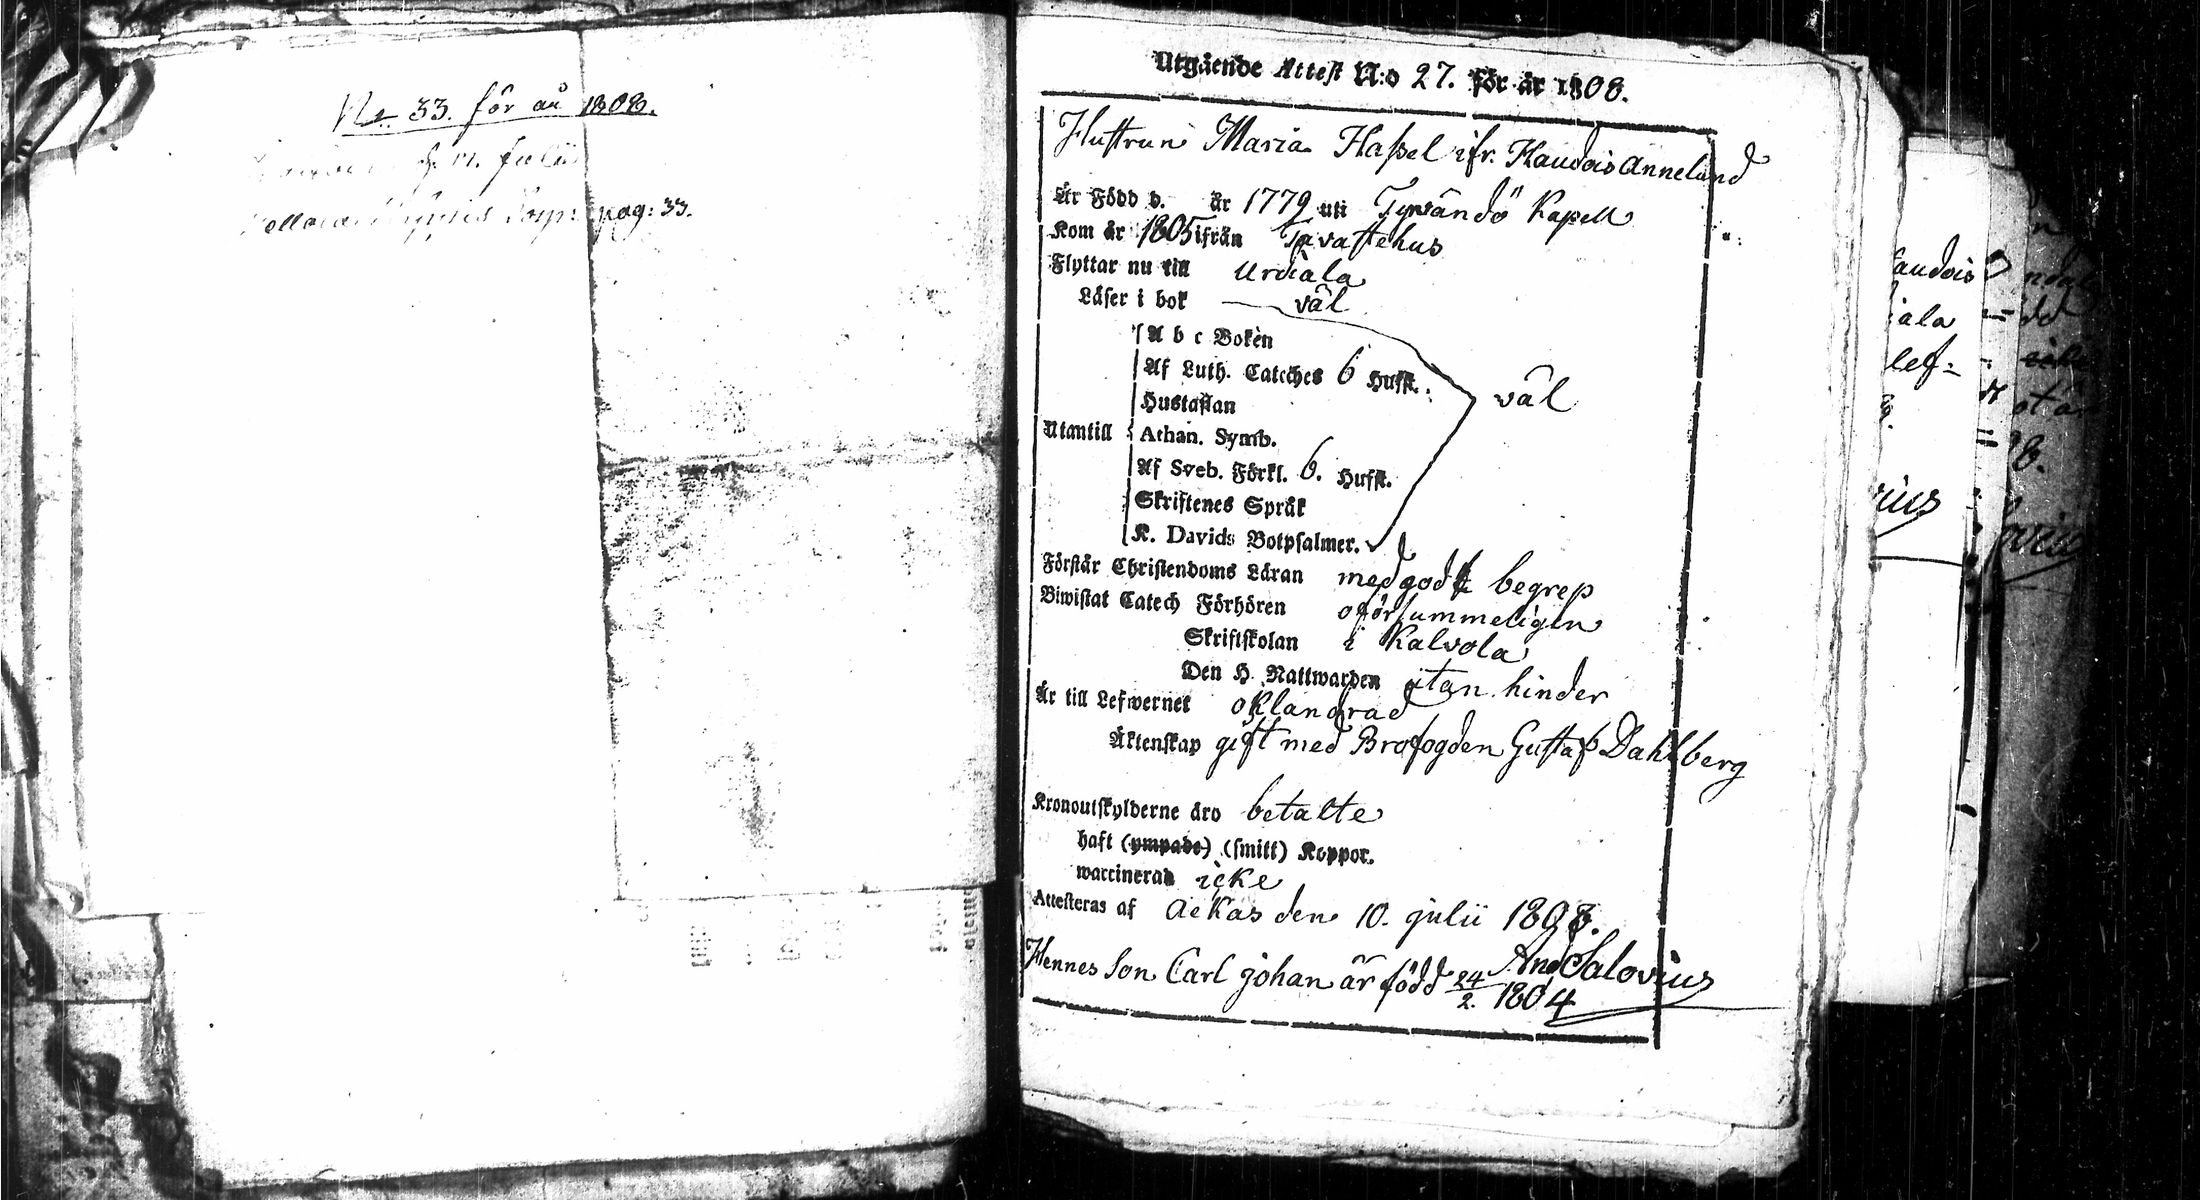 No 33. för år 1808.
d. 12. julii
pag: 33.
Utgående Attest N:o 27. för år 1808.
Hustrun Maria Haßel ifr. Kaudois Annelund
Är Född d. år 1779 uti Tyrvändö Kapell
Kom år 1805 ifrån Tavastehus
Flyttar nu till Urdiala
Läser i bok väl
A b c Boken
Af Luth. Catches 6 Hufst.
Hustaflan
väl
Utantill Athan. Symb.
Af Sveb. Förkl. 6. Hufst.
Skriftenes Språk
K. Davids Botpsalmer.
Förstår Christendoms Läran med godt begrep
Biwistat Catech Förhören oförsummeligen
Skriftskolan i Kalvola
Den H. Nattwarden utan hinder
Är till Lefwernet oklandrad
Äktenskap gift med Brofogden Gustaf Dahlberg
Kronoutskylderne äro betalte
haft (ympade) (smitt) Koppor.
waccinerad icke
Attesteras af Ackas den 10. julii 1808.
And Salovius
Hennes son Carl Johan är född 24/2. 1804
audois
iala
lef:
rius